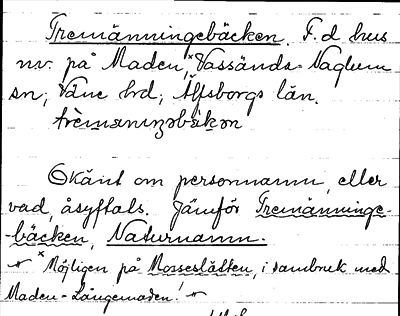 Tremänningebäcken. F.d. hus
nv. på Maden,× Vassända-Naglum
sn; Väne hd; Älfsborgs län.
Okänt om personnamn, eller
vad, åsyftals. Jämför Tremänninge-
-bäcken, Naturnamn.
× Möjligen på Mosseslätten, i sambruk med
Maden - Långemaden!